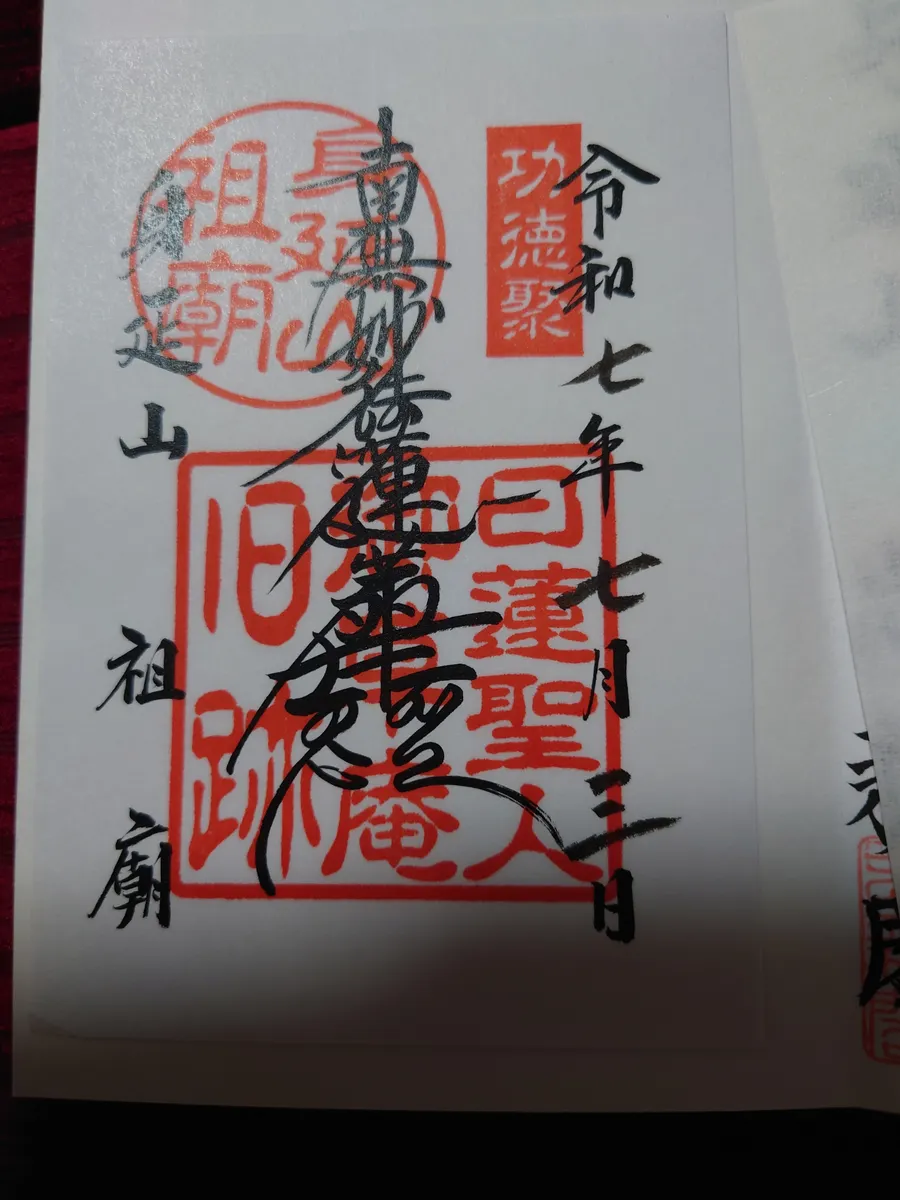 令和七年七月三日
功徳聚
南無妙法蓮華経
身延山
祖廟
日蓮聖人
御草庵
旧跡
身延山祖廟